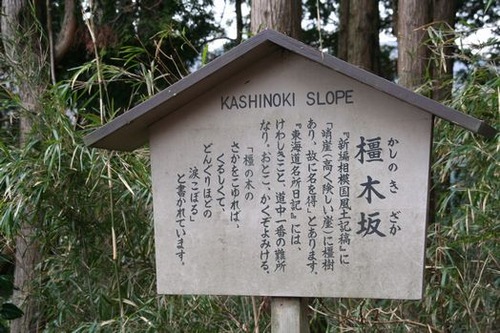 KASHINOKI SLOPE
かしのき ざか
橿木坂
『新編相模国風土記稿』に
「峭崖(高く険しい崖)に橿樹
あり、故に名を得」とあります。
『東海道名所日記』には、
けわしきこと、道中一番の難所
なり。おとこ、かくぞよみける。
「橿の木の
さかをこゆれば、
くるしくて、
どんぐりほどの
涙こぼる」
と書かれています。